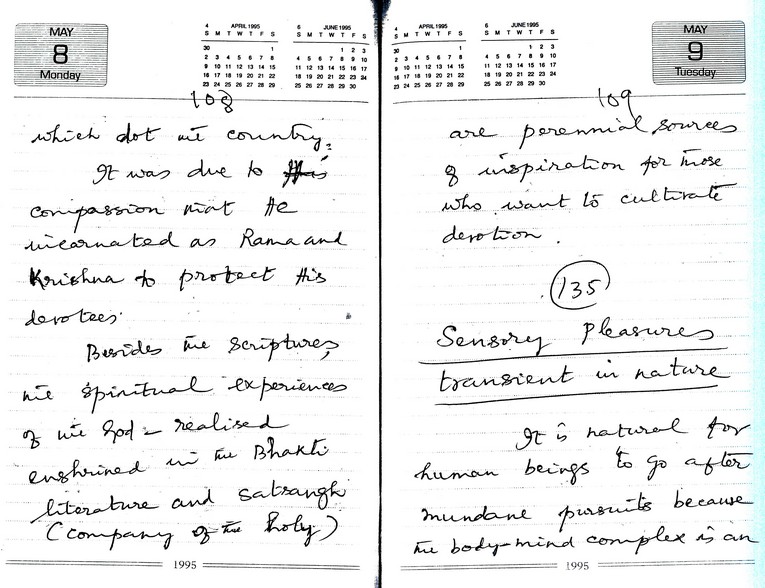 MAY
8
Monday
4 APRIL 1995
S M T W T F S
30 1
2 3 4 5 6 7 8
9 10 11 12 13 14 15
16 17 18 19 20 21 22
23 24 25 26 27 28 29
6 JUNE 1995
S M T W T F S
1 2 3
4 5 6 7 8 9 10
11 12 13 14 15 16 17
18 19 20 21 22 23 24
25 26 27 28 29 30
108
which dot the country.
It was due to His
compassion that He
incarnated as Rama and
Krishna to protect His
devotees.
Besides the scriptures,
the spiritual experiences
of the God-realised
enshrined in the Bhakti
literature and satsangh
(company of the holy)
1995
4 APRIL 1995
S M T W T F S
30 1
2 3 4 5 6 7 8
9 10 11 12 13 14 15
16 17 18 19 20 21 22
23 24 25 26 27 28 29
6 JUNE 1995
S M T W T F S
1 2 3
4 5 6 7 8 9 10
11 12 13 14 15 16 17
18 19 20 21 22 23 24
25 26 27 28 29 30
MAY
9
Tuesday
109
are perennial sources
of inspiration for those
who want to cultivate
devotion.
135
Sensory Pleasures
transient in nature
It is natural for
human beings to go after
mundane pursuits because
the body-mind complex is an
1995